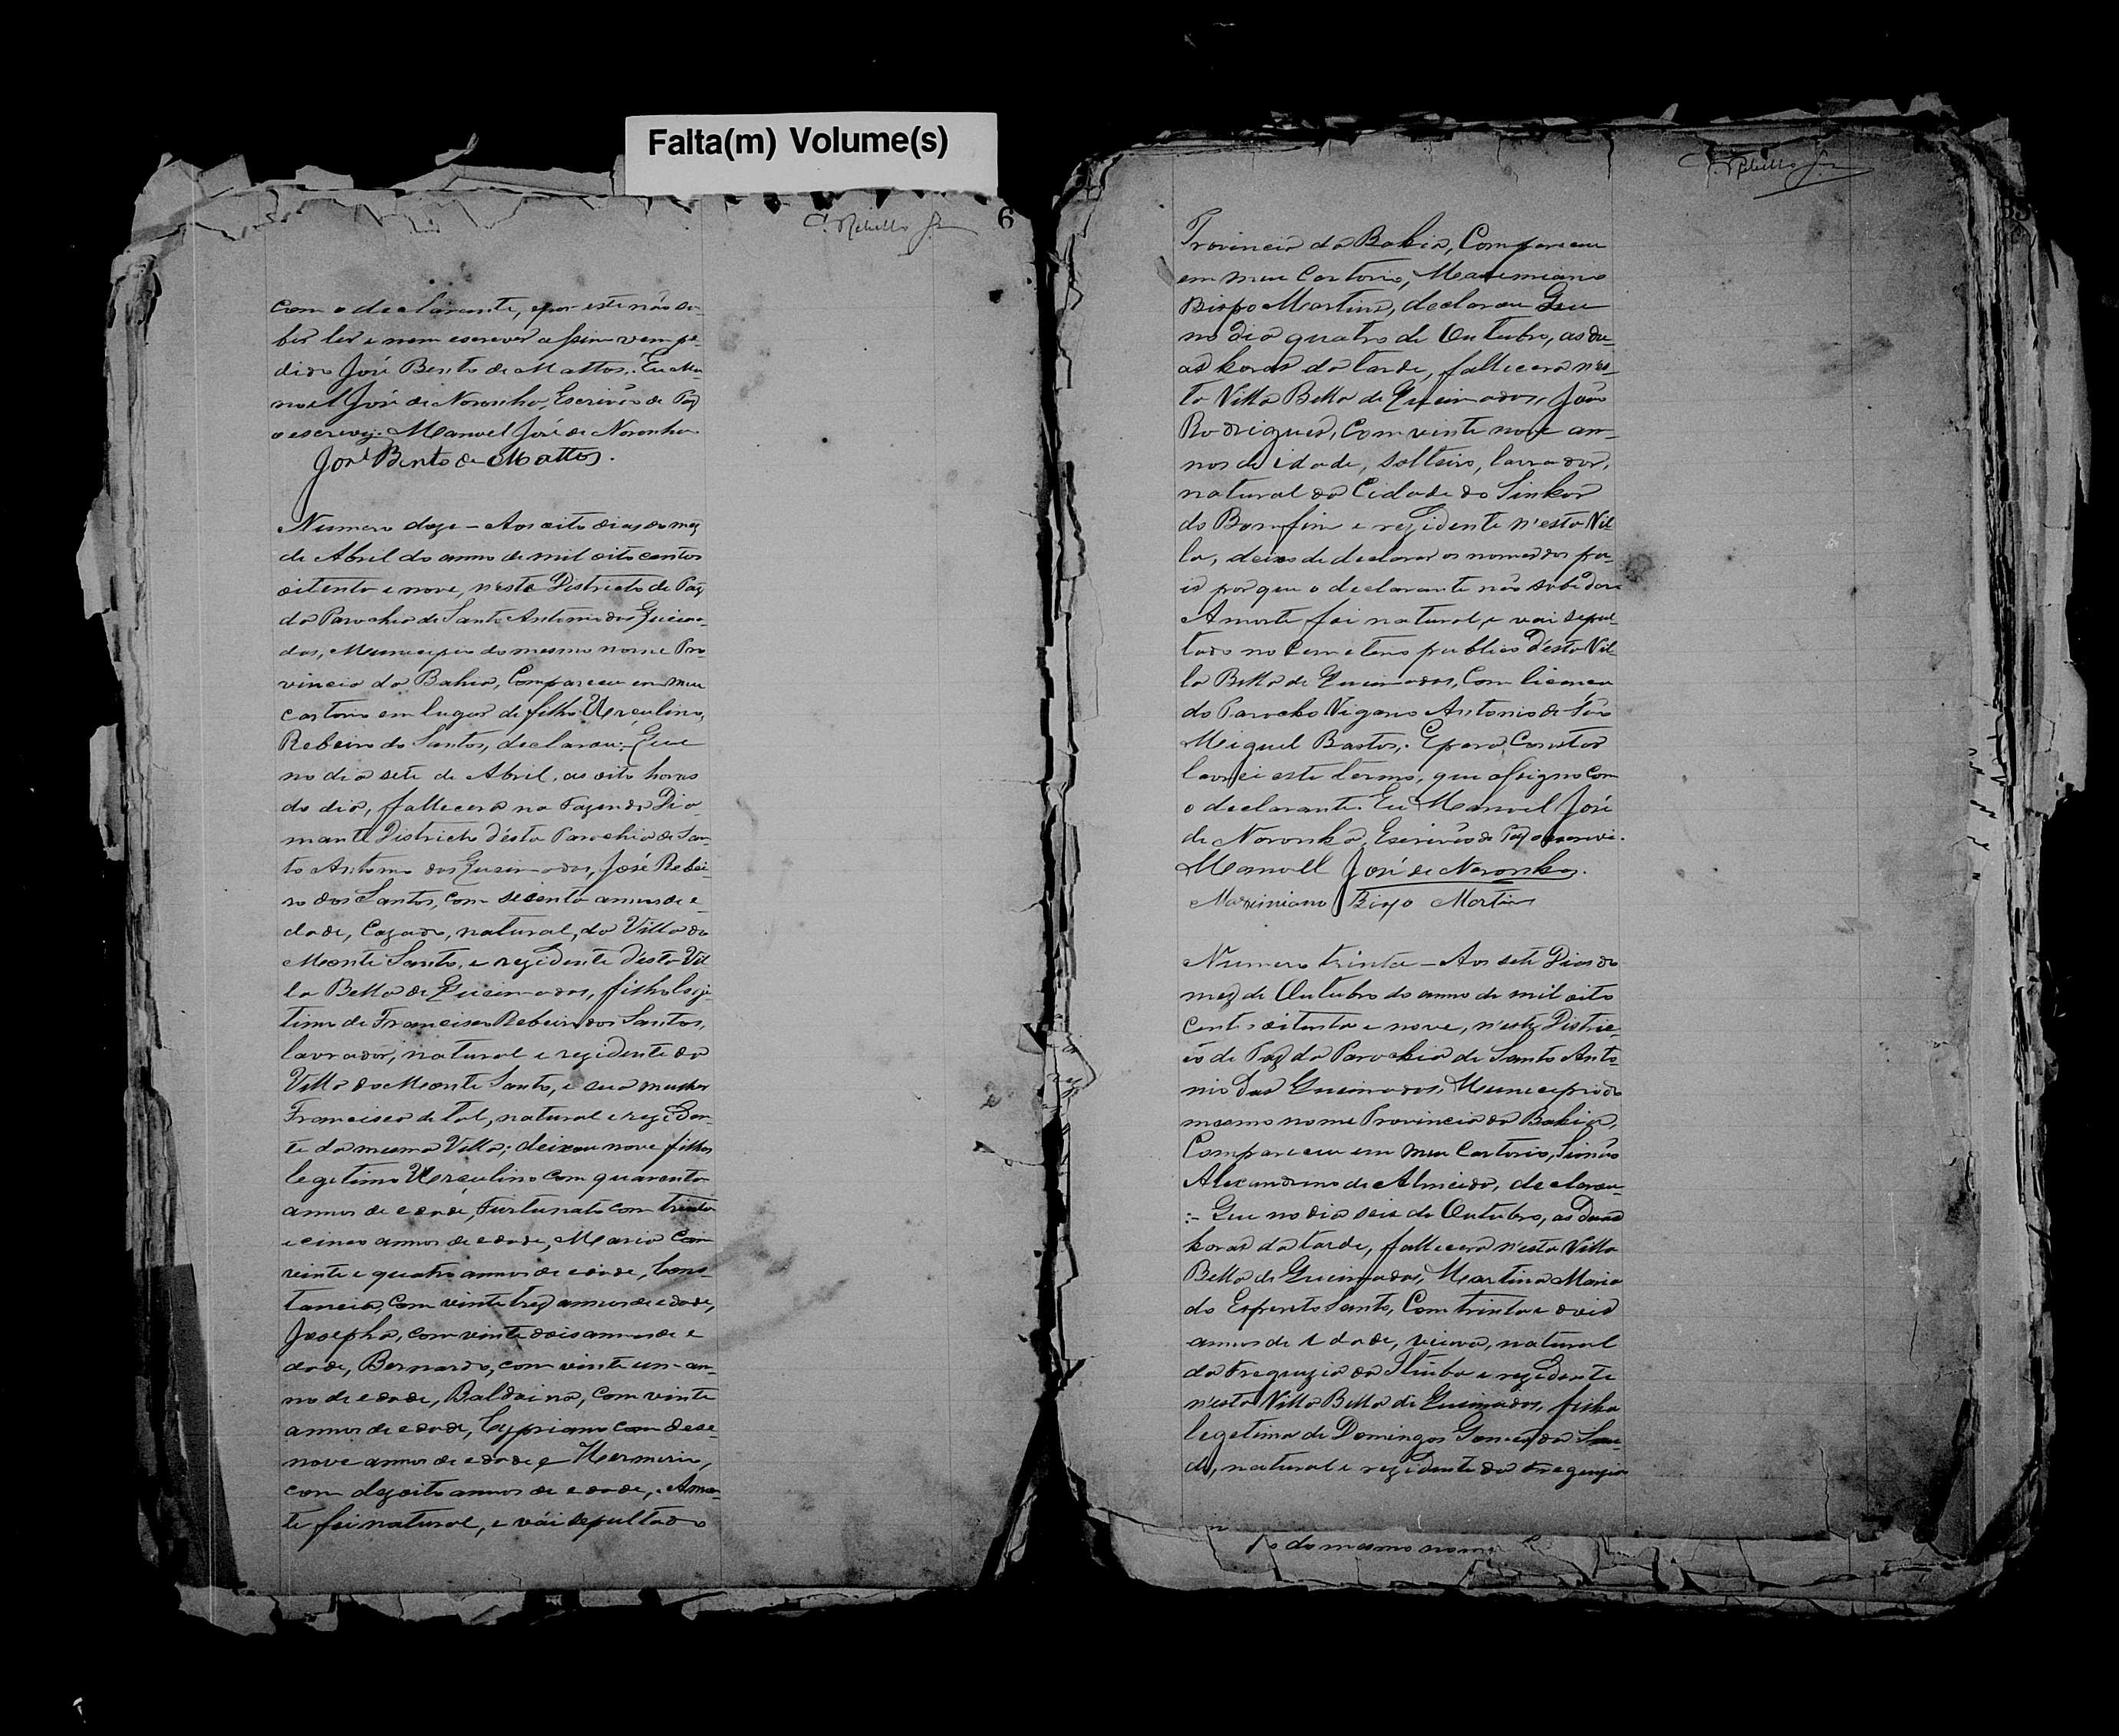 Falta(m) Volume(s)
C. Rebello Jr
6
com o declarante, e por este não sa-
ber ler e nem escrever assim vem pe-
dido José Bento de Mattos. Eu Ma-
noel José de Noronha, Escrivão de Paz
o escrevy. Manoel José de Noronha
José Bento de Mattos.
Numero doze - Aos oito dias do mez
de Abril do anno de mil oito centos
oitenta e nove, n'este Districto de Paz
da Parochia de Santo Antonio das Queima-
das, Municipio do mesmo nome Pro-
vincia da Bahia, Compareceu em meu
cartorio em lugar de filho Uerculino,
Rebeiro do Santos, declarou: Que
no dia sete de Abril, as oito horas
do dia, fallecera na Fazenda Dia-
mante Districto d'esta Parochia de San-
to Antonio das Queimadas, José Rebei-
ro dos Santos, com secenta annos de e-
dade, Cazado, natural, da Villa do
Monte Santo, e rezidente d'esta Vil
la Bella de Queimadas, filho legi-
timo de Francisco Rebeiro dos Santos,
lavrador, natural e rezidente da
Villa do Monte Santo, e sua mulher
Francisca de tal, natural e reziden-
te da mesma Villa; deixou nove filhos
legitimo Uerculino com quarenta
annos de edade, Furtunato com trinta
e cinco annos de edade, Maria com
vinte e quatro annos de edade, Cons-
tancia, com vinte trez annos de edade,
Josepha, com vinte dois annos de e
dade, Bernardo, com vinte un an-
no de edade, Baldoina, com vinte
annos de edade, Cypriano com dese-
nove annos de edade e Hermirio,
com dezoito annos de edade,. A mor-
te foi natural, e vai sepultado
C. Rebello Jr
Provincia da Bahia, Compareceu
em meu Cartorio, Maximiano
Bispo Martins, declarou Que
no dia quatro de Outubro, as du-
as horas da tarde, fallecera n'es-
ta Villa Bella de Queimadas, João
Rodrigues, Com vinte nove an-
nos de idade, solteiro, lavrador,
natural da Cidade do Sinhor
do Bomfim e rezidente n'esta Vil
la, deixo de declarar os nomes dos pa-
is por que o declarante não sabe dar.
A morte foi natural, e vai sepul-
tado no Cemeterio publico d'esta Vil-
la Bella de Queimadas, Com licença
do Parocho Vigario Antonio de São
Miguel Bastos,. E para Constar
lavrei este termo, que assigno com
o declarante. Eu Manoel José
de Noronha, Escrivão de Paz o escrevi.
Manoell José de Noronha.
Maximiano Bispo Martins
Numero trinta - Aos sete Dias do
mez de Outubro do anno de mil oito
centos oitenta e nove, n'este Distric-
to de Paz da Parochia de Santo Anto-
nio das Queimadas, Municipio do
mesmo nome Provincia da Bahia,
Compareceu em meu Cartorio, Simão
Alexandrino de Almeida, declarou
:- Que no dia seis de Outubro, as Duas
horas da tarde, fallecera n'esta Villa
Bella de Queimadas, Martina Maria
do Espereto Santo, Com trinta e dois
annos de edade, viuva, natural
da Freguezia da Itiuba e rezidente
n'esta Villa Bella de Queimadas, filha
legetima de Domingos
natural e rezidente da Freguezia
do mesmo nome